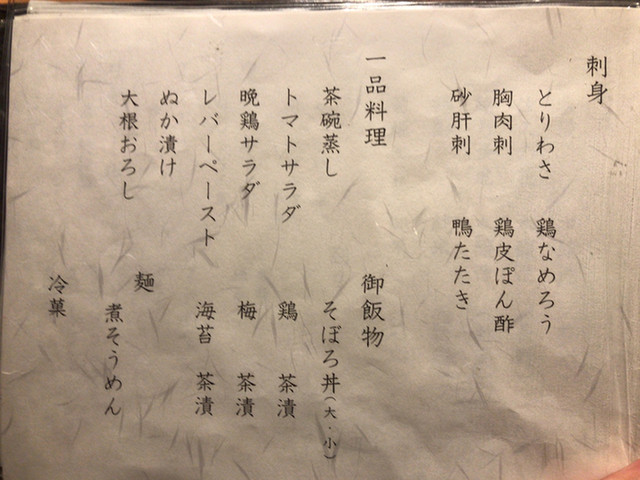 刺身
とりわさ 鶏なめろう
胸肉刺 鶏皮ぽん酢
砂肝刺 鴨たたき
一品料理
茶碗蒸し
トマトサラダ
晩鶏サラダ
レバーペースト
ぬか漬け
大根おろし
御飯物
そぼろ丼(大・小)
鶏 茶漬
梅 茶漬
海苔 茶漬
麺
煮そうめん
冷菓